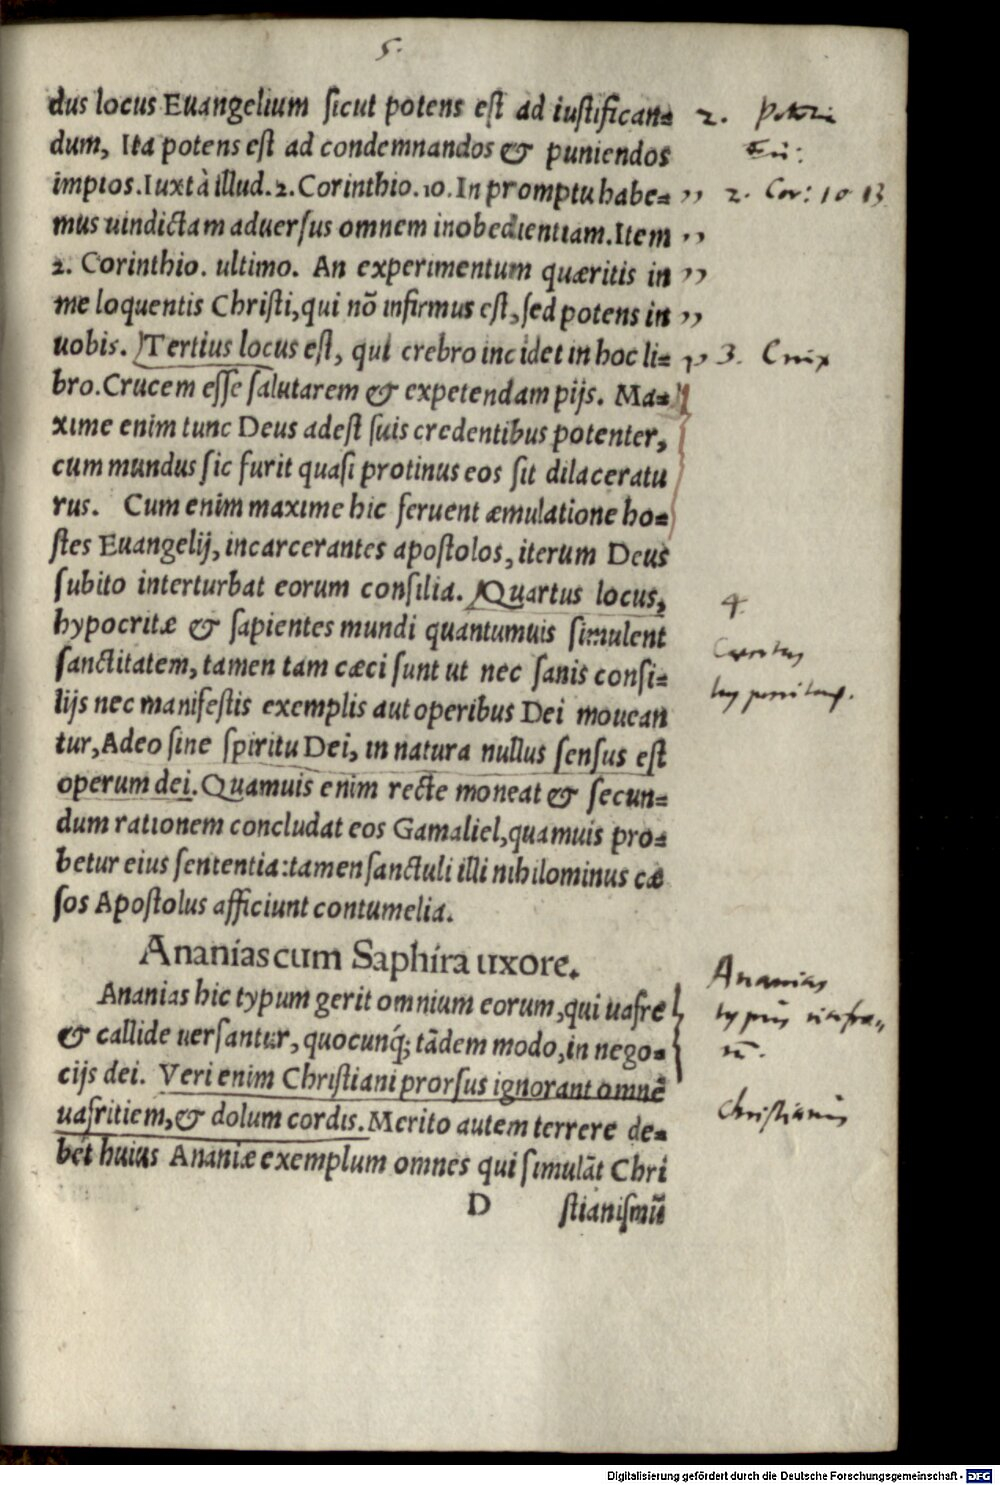 5.
dus locus Euangelium ſicut potens eſt ad iuſtifican⸗
dum, Ita potens eſt ad condemnandos & puniendos
impios. Iuxtà illud. 2. Corinthio. 10. In promptu habe⸗
mus uindictam aduerſus omnem inobedientiam. Item
2. Corinthio. ultimo. An experimentum quæritis in
me loquentis Chriſti, qui nō infirmus eſt, ſed potens in
uobis. Tertius locus eſt, qui crebro incidet in hoc li⸗
bro. Crucem eſſe ſalutarem & expetendam pijs. Ma⸗
xime enim tunc Deus adeſt ſuis credentibus potenter,
cum mundus ſic furit quaſi protinus eos ſit dilaceratu
rus. Cum enim maxime hic feruent æmulatione ho⸗
ſtes Euangelij, incarcerantes apoſtolos, iterum Deus
ſubito interturbat eorum conſilia. Quartus locus,
hypocritæ & ſapientes mundi quantumuis ſimulent
ſanctitatem, tamen tam cæci ſunt ut nec ſanis conſi⸗
lijs nec manifeſtis exemplis aut operibus Dei mouean
tur, Adeo ſine ſpiritu Dei, in natura nullus ſenſus eſt
operum dei. Quamuis enim recte moneat & ſecun⸗
dum rationem concludat eos Gamaliel, quamuis pro⸗
betur eius ſententia: tamen ſanctuli illi nihilominus cæ
ſos Apoſtolus afficiunt contumelia.
Ananias cum Saphira uxore.
Ananias hic typum gerit omnium eorum, qui uafre
& callide uerſantur, quocunq́; tādem modo, in nego⸗
cijs dei. Veri enim Chriſtiani prorſus ignorant omnē
uafritiem, & dolum cordis. Merito autem terrere de⸗
bét huius Ananiæ exemplum omnes qui ſimulāt Chri
D ſtianiſmū
2.
2. Cor: 10 13
3. Crux
4.
Ananias
typus
Christianus
Digitalisierung gefördert durch die Deutsche Forschungsgemeinschaft - DFG